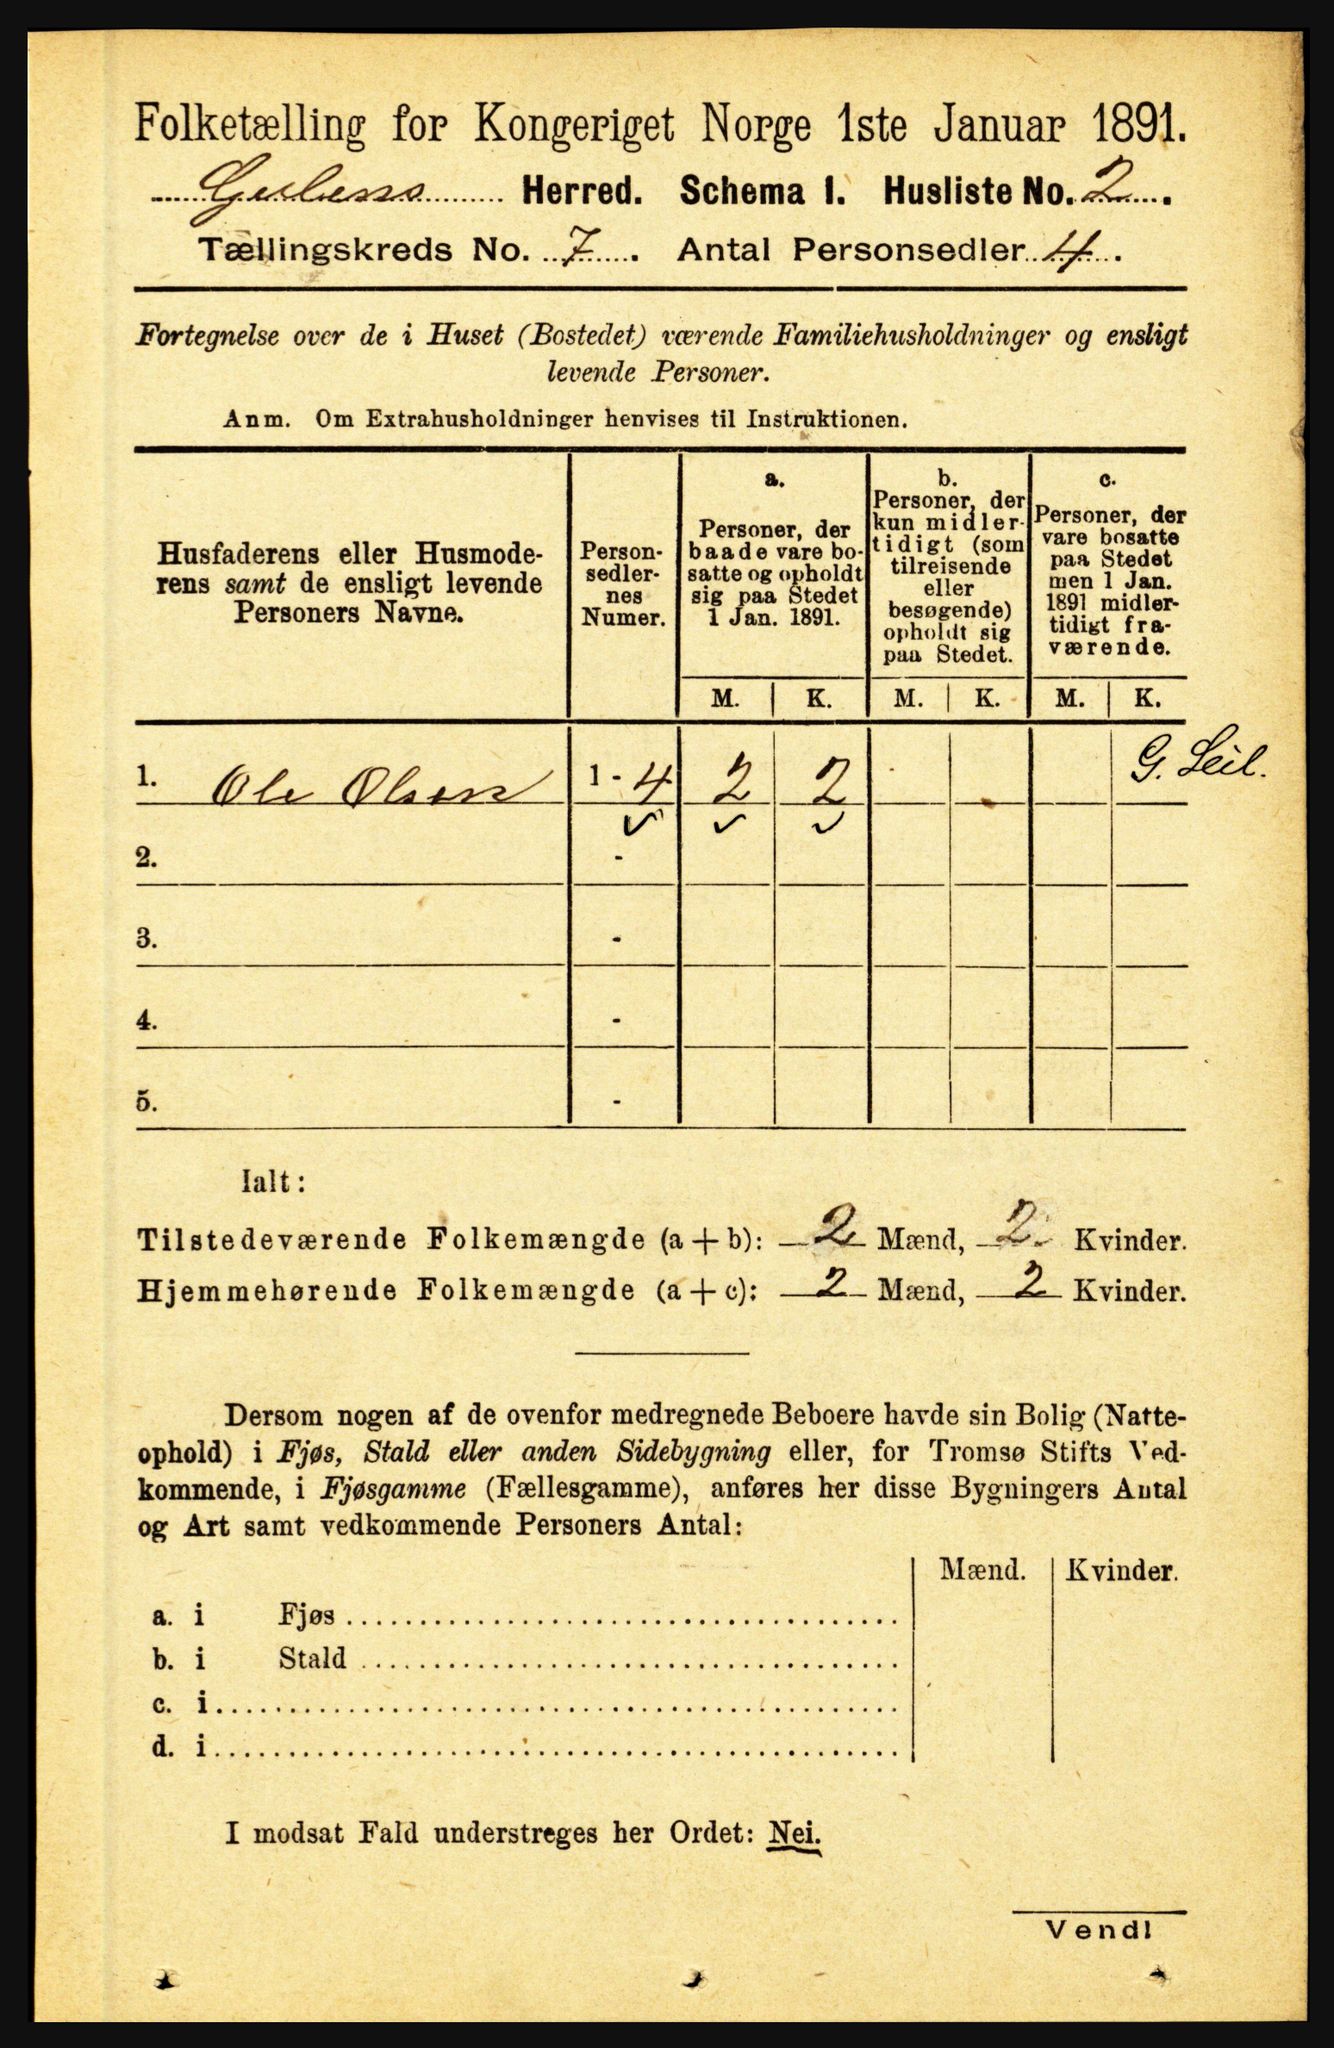 Folketælling for Kongeriget Norge 1ste Januar 1891.
Gulens Herred. Schema I. Husliste No. 2.
Tællingskreds No. 7. Antal Personsedler 4.
Fortegnelse over de i Huset (Bostedet) værende Familiehusholdninger og ensligt
levende Personer.
Anm. Om Extrahusholdninger henvises til Instruktionen.
Husfaderens eller Husmode-
rens samt de ensligt levende
Personers Navne.
Person-
sedler-
nes
Numer.
a.
Personer, der
baade vare bo-
satte og opholdt
sig paa Stedet
1 Jan. 1891.
b.
Personer, der
kun midler-
tidigt (som
tilreisende
eller
besøgende)
opholdt sig
paa Stedet.
c.
Personer, der
vare bosatte
paa Stedet
men 1 Jan.
1891 midler-
tidigt fra-
værende.
M. K. M. K. M. K.
1. Ole Olsen 1 - 4 2 2 G. Leil.
2. -
3. -
4. -
5. -
Ialt:
Tilstedeværende Folkemængde (a + b): 2 Mænd, 2 Kvinder.
Hjemmehørende Folkemængde (a + c): 2 Mænd, 2 Kvinder.
Dersom nogen af de ovenfor medregnede Beboere havde sin Bolig (Natte-
ophold) i Fjøs, Stald eller anden Sidebygning eller, for Tromsø Stifts Ved-
kommende, i Fjøsgamme (Fællesgamme), anføres her disse Bygningers Antal
og Art samt vedkommende Personers Antal:
Mænd. Kvinder.
a. i Fjøs
b. i Stald
c. i
d. i
I modsat Fald understreges her Ordet: Nei.
Vend!